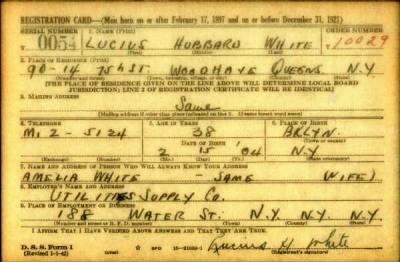 REGISTRATION CARD—(Men born on or after February 17, 1897 and on or before December 31, 1921)
SERIAL NUMBER 1. NAME (Print) ORDER NUMBER
0054 LUCIUS HUBBARD WHITE 10029
(First) (Middle) (Last)
2. PLACE OF RESIDENCE (Print)
90-14 75th ST. WOODHAVE QUEENS N.Y.
(Number and street) (Town, township, village, or city) (County) (State)
[THE PLACE OF RESIDENCE GIVEN ON THE LINE ABOVE WILL DETERMINE LOCAL BOARD
JURISDICTION; LINE 2 OF REGISTRATION CERTIFICATE WILL BE IDENTICAL]
3. MAILING ADDRESS
Same
[Mailing address if other than place indicated on line 2. If same insert word same]
4. TELEPHONE 5. AGE IN YEARS 6. PLACE OF BIRTH
MI 2-5124 38 BKLYN.
DATE OF BIRTH (Town or county)
2 15 '04 N.Y
(Exchange) (Number) (Mo.) (Day) (Yr.) (State or country)
7. NAME AND ADDRESS OF PERSON WHO WILL ALWAYS KNOW YOUR ADDRESS
AMELIA WHITE — SAME (WIFE)
8. EMPLOYER'S NAME AND ADDRESS
UTILITIES SUPPLY CO.
9. PLACE OF EMPLOYMENT OR BUSINESS
188 WATER ST. N.Y. N.Y. N.Y.
(Number and street or R. F. D. number) (Town) (County) (State)
I AFFIRM THAT I HAVE VERIFIED ABOVE ANSWERS AND THAT THEY ARE TRUE.
D. S. S. Form 1
(Revised 1-1-42) (over) GPO Lucius H White